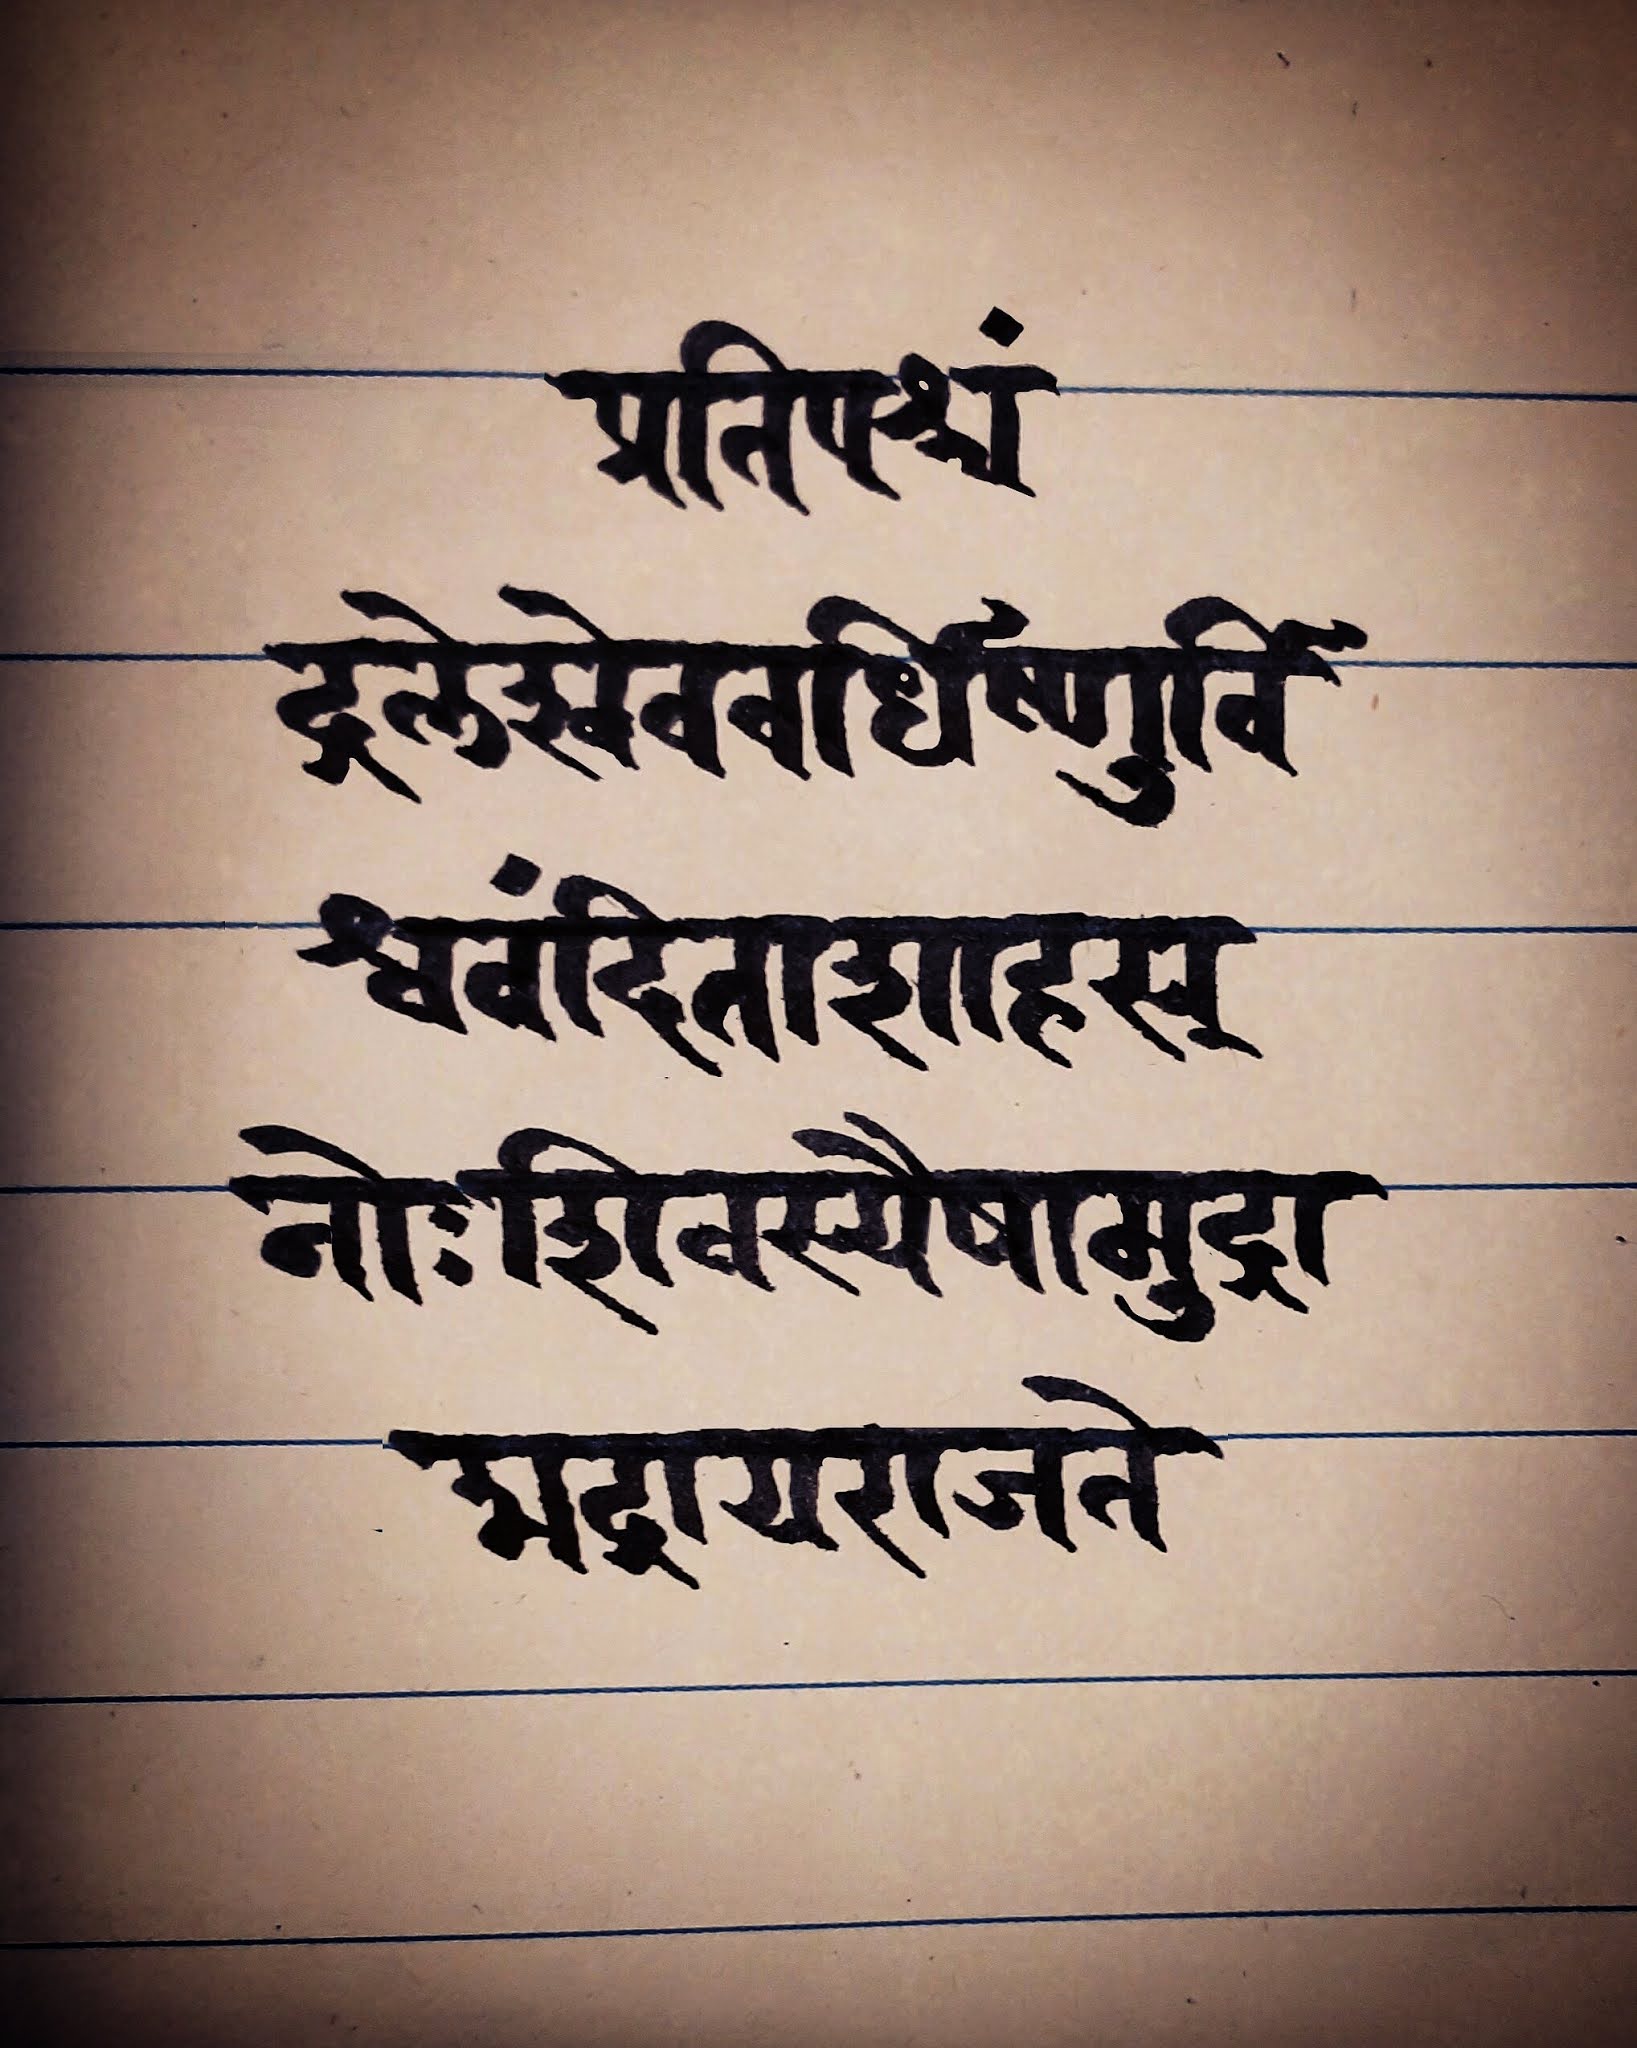 प्रतिपश्चं
द्रलेखेववर्धिष्णुर्वि
श्ववंदिताशाहसू
नोःशिवस्यैषामुद्रा
भद्रायराजते